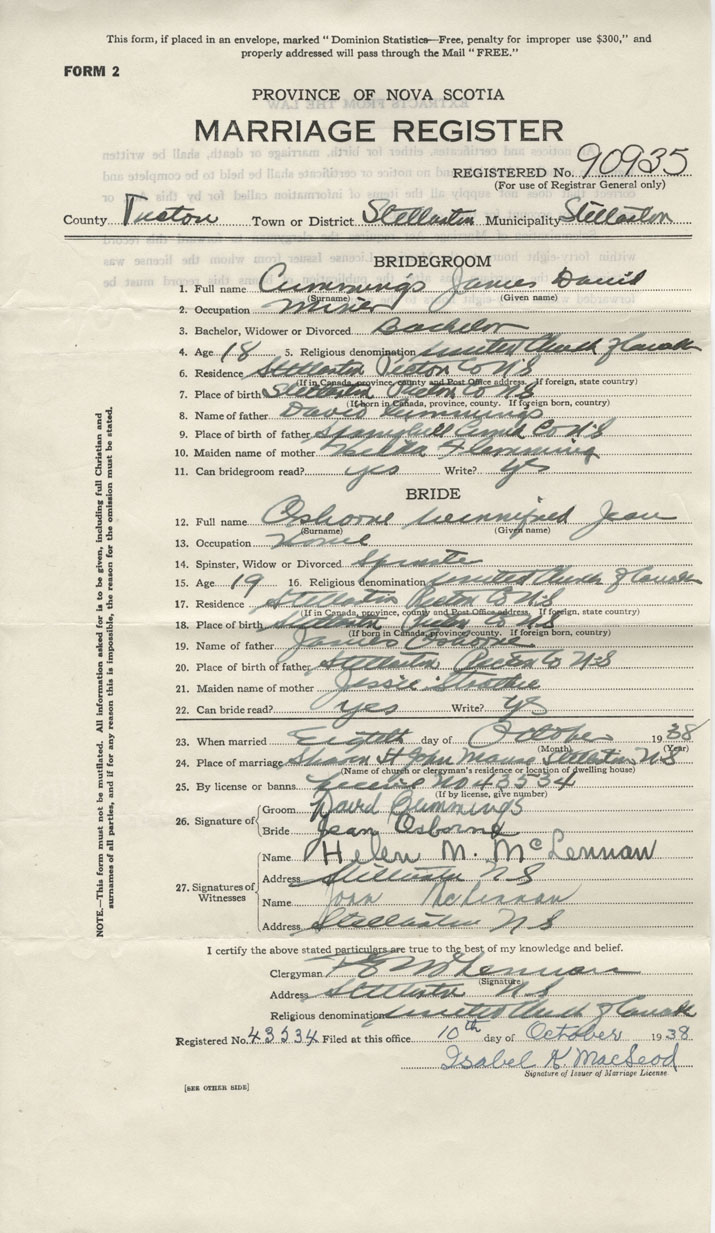 This form, if placed in an envelope, marked "Dominion Statistics—Free, penalty for improper use $300," and
properly addressed will pass through the Mail "FREE."
FORM 2
PROVINCE OF NOVA SCOTIA
MARRIAGE REGISTER
REGISTERED No. 90935
(For use of Registrar General only)
County Pictou Town or District Stellarton Municipality Stellarton
BRIDEGROOM
1. Full name Cummings James David
(Surname) (Given name)
2. Occupation Miner
3. Bachelor, Widower or Divorced Bachelor
4. Age 18 5. Religious denomination United Church of Canada
6. Residence Stellarton Pictou Co N.S
(If in Canada, province, county and Post Office address. If foreign, state country)
7. Place of birth Stellarton Pictou Co N.S
(If born in Canada, province, county. If foreign born, country)
8. Name of father David Cummings
9. Place of father Springhill Cumb Co N.S
10. Maiden name of mother Flemming
11. Can bridegroom read? yes Write? yes
BRIDE
12. Full name Osborne Winnifred Jean
(Surname) (Given name)
13. Occupation Home
14. Spinster, Widow or Divorced Spinster
15. Age 19 16. Religious denomination United Church of Canada
17. Residence Stellarton Pictou Co N.S
(If in Canada, province, county and Post Office address. If foreign, state country)
18. Place of birth Stellarton Pictou Co N.S
(If born in Canada, province, county. If foreign born, country)
19. Name of father James Osborne
20. Place of birth of father Stellarton Pictou Co N.S
21. Maiden name of mother Jessie Strathie
22. Can bride read? yes Write? yes
23. When married Eighth day of October 1938
(Month) (Year)
24. Place of marriage Sharon St John Manse Stellarton N.S
(Name of church or clergyman's residence or location of dwelling house)
25. By license or banns License No 43534
(If by license, give number)
26. Signature of Groom David Cummings
Bride Jean Osborne
27. Signatures of Witnesses
Name Helen M. McLennan
Address Stellarton N S
Name Joan McLennan
Address Stellarton N S
I certify the above stated particulars are true to the best of my knowledge and belief.
Clergyman McLennan
(Signature)
Address Stellarton N.S
Religious denomination United Church of Canada
Registered No. 43534 Filed at this office 10th day of October 1938
Isabel K. MacLeod
Signature of Issuer of Marriage License
[SEE OTHER SIDE]
NOTE.—This form must not be mutilated. All information asked for is to be given, including full Christian and
surnames of all parties, and if for any reason this is impossible, the reason for the omission must be stated.